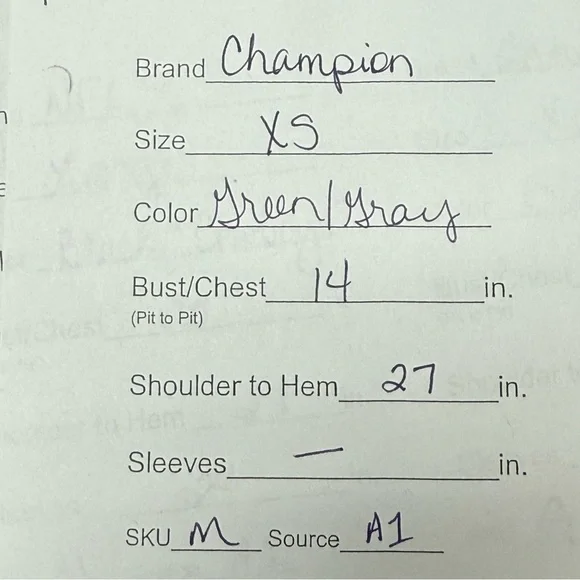 Brand Champion
Size XS
Color Green/Gray
Bust/Chest 14 in.
(Pit to Pit)
Shoulder to Hem 27 in.
Sleeves — in.
SKU M Source A1